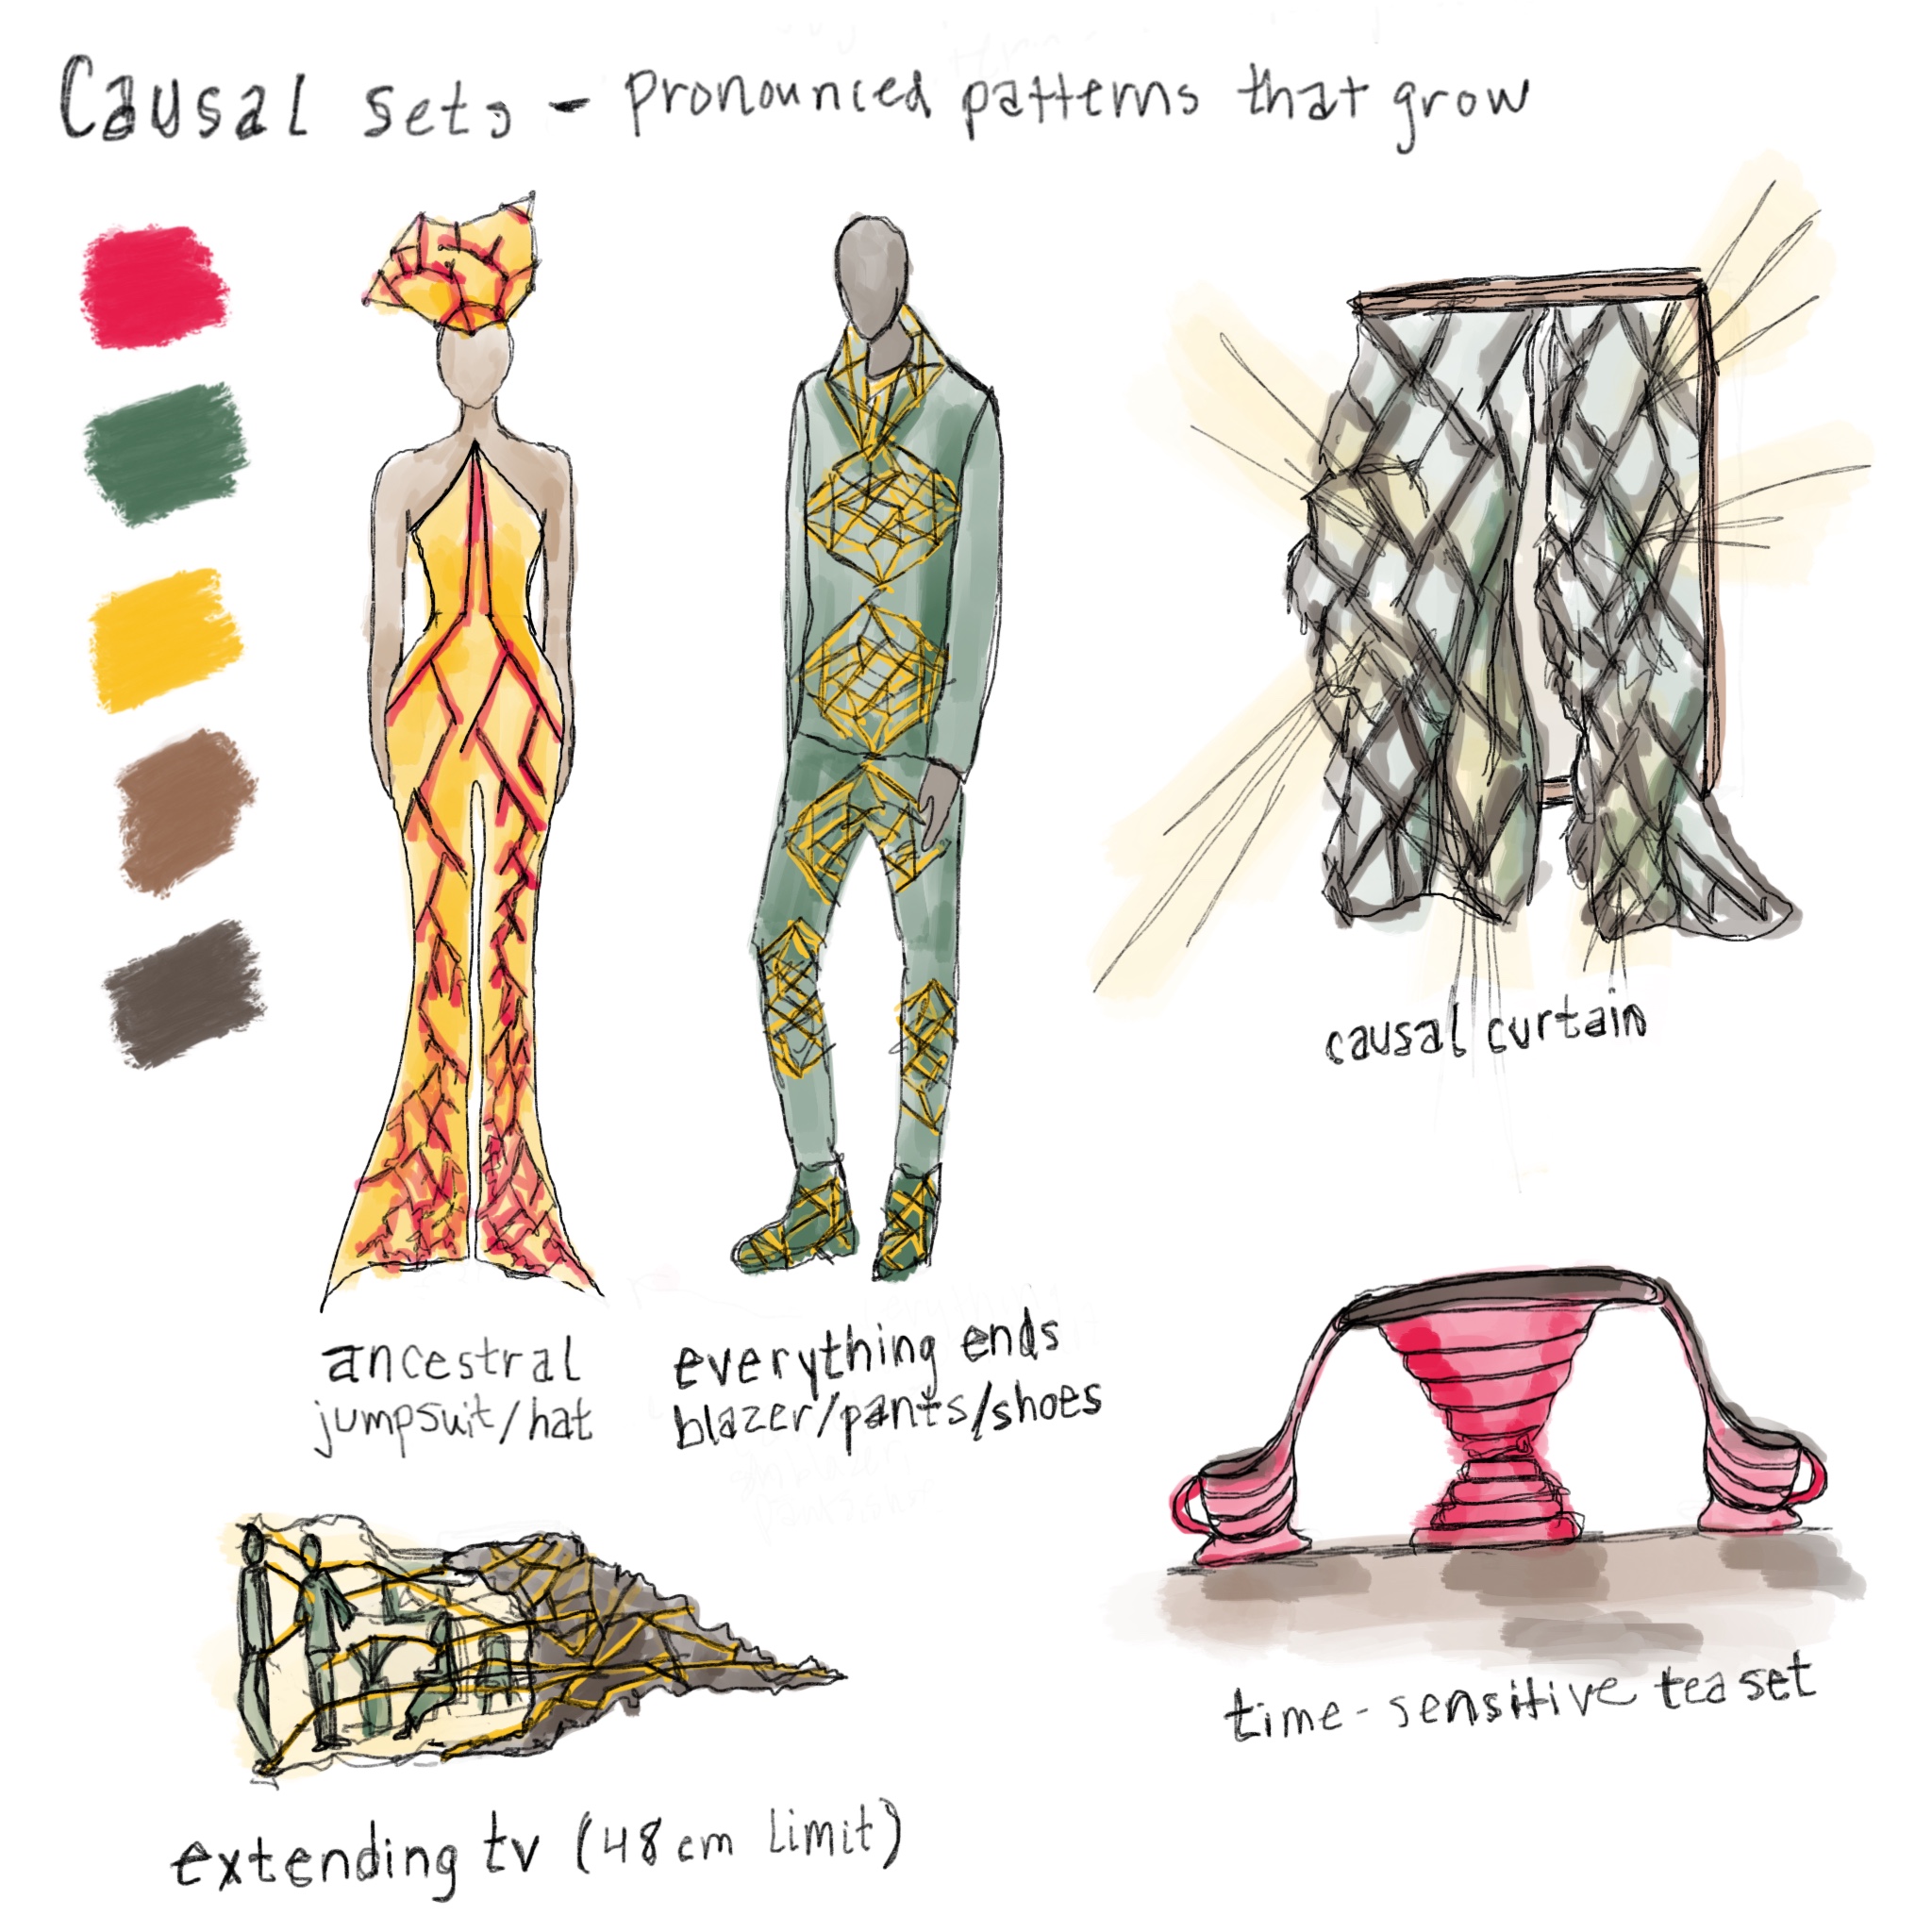 Causal sets - pronounced patterns that grow
causal curtain
ancestral
jumpsuit/hat
everything ends
blazer/pants/shoes
time-sensitive tea set
extending tv (48 cm limit)